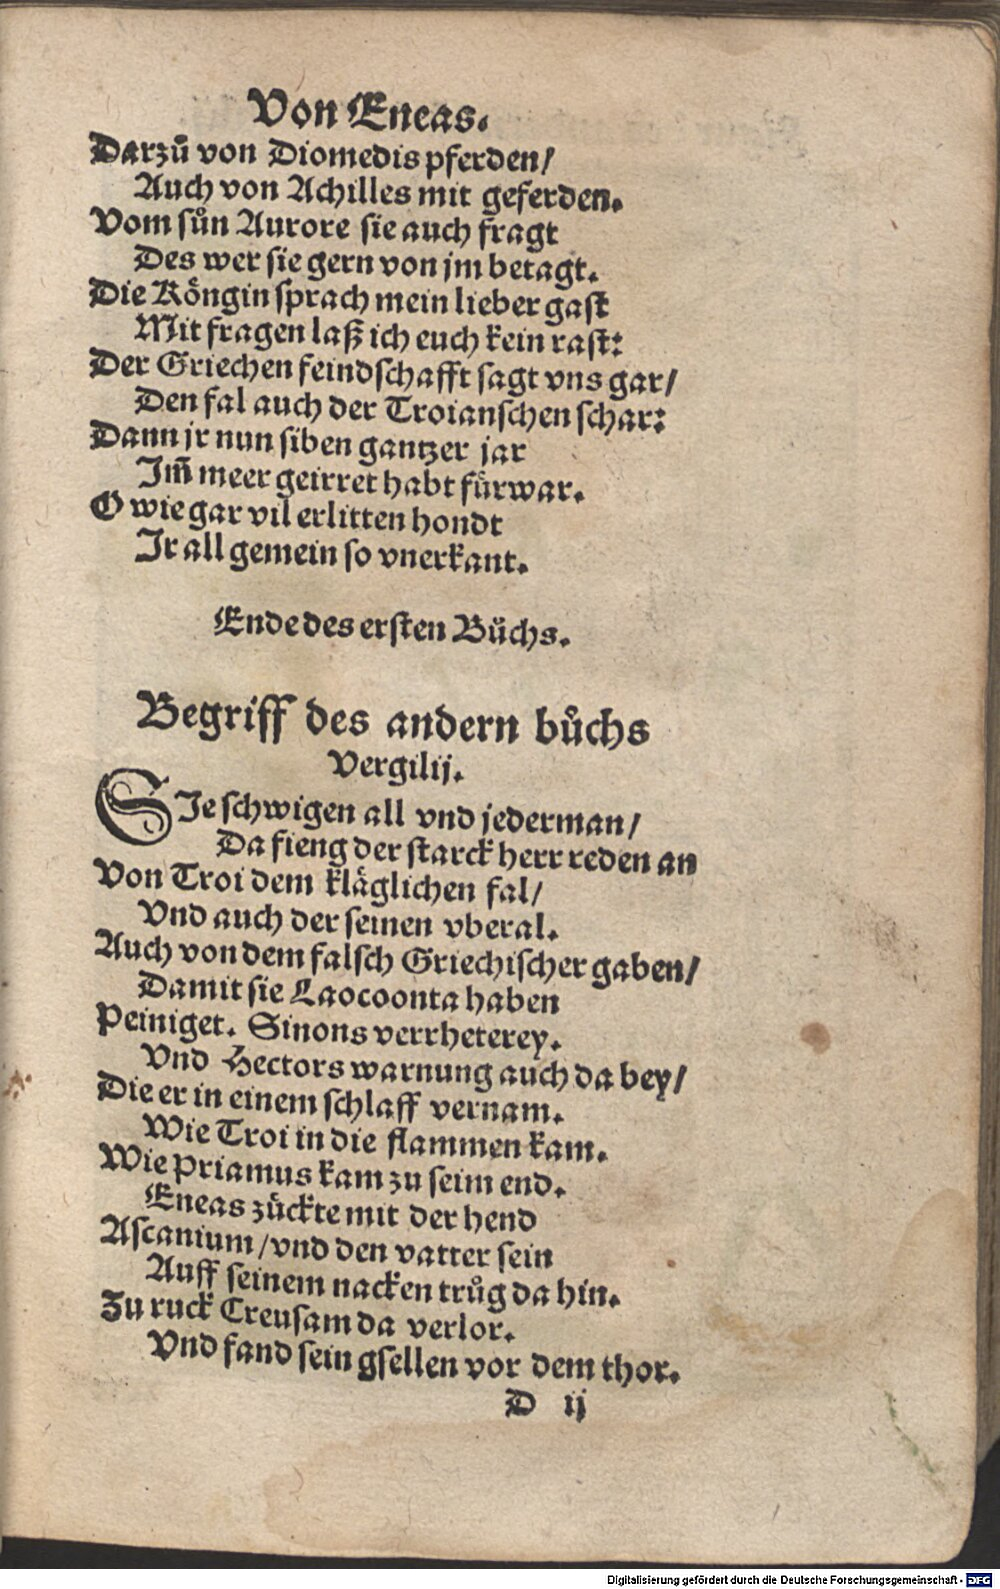 Von Eneas.
Darzuͦ von Diomedis pferden/
Auch von Achilles mit geferden.
Vom suͦn Aurore sie auch fragt
Des wer sie gern von jm betagt.
Die Koͤngin sprach mein lieber gast
Mit fragen laß ich euch kein rast:
Der Griechen feindschafft sagt vns gar/
Den fal auch der Troianschen schar:
Dann jr nun siben gantzer jar
Im̃ meer geirret habt fuͤrwar.
O wie gar vil erlitten hondt
Jr all gemein so vnerkant.
Ende des ersten Buͦchs.
Begriff des andern buͦchs
Vergilij.
SIe schwigen all vnd jederman/
Da fieng der starck herr reden an
Von Troi dem klaͤglichen fal/
Vnd auch der seinen vberal.
Auch von dem falsch Griechischer gaben/
Damit sie Laocoonta haben
Peiniget. Sinons verrheterey.
Vnd Hectors warnung auch da bey/
Die er in einem schlaff vernam.
Wie Troi in die flammen kam.
Wie Priamus kam zu seim end.
Eneas zuͤckte mit der hend
Ascanium/vnd den vatter sein
Auff seinem nacken truͦg da hin.
Zu ruck Creusam da verlor.
Vnd fand sein gsellen vor dem thor.
D ij
Digitalisierung gefördert durch die Deutsche Forschungsgemeinschaft - DFG